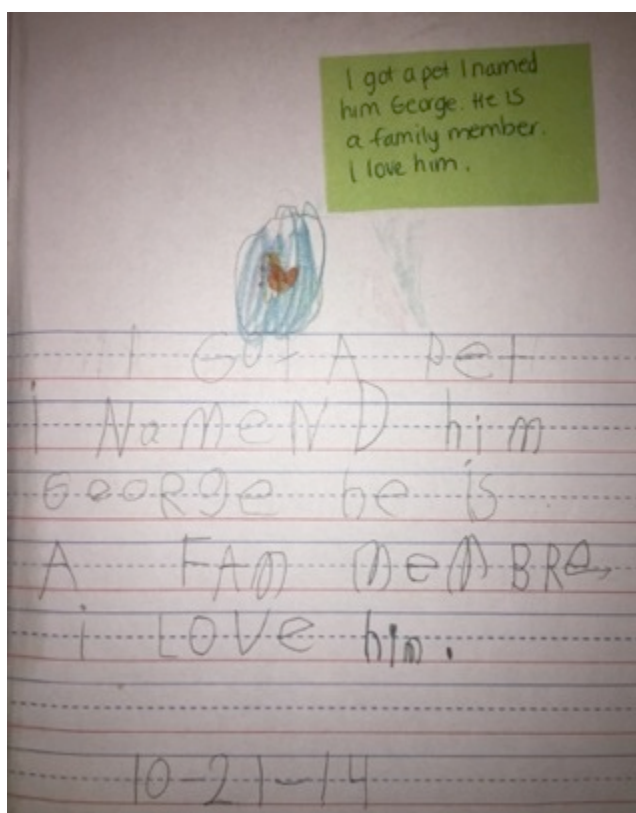 I got a pet I named
him George. He is
a family member.
I love him.
I Got A pet
i NameND him
GeoRge he is
A FAm memBRe
i LOVe him.
10-21-14